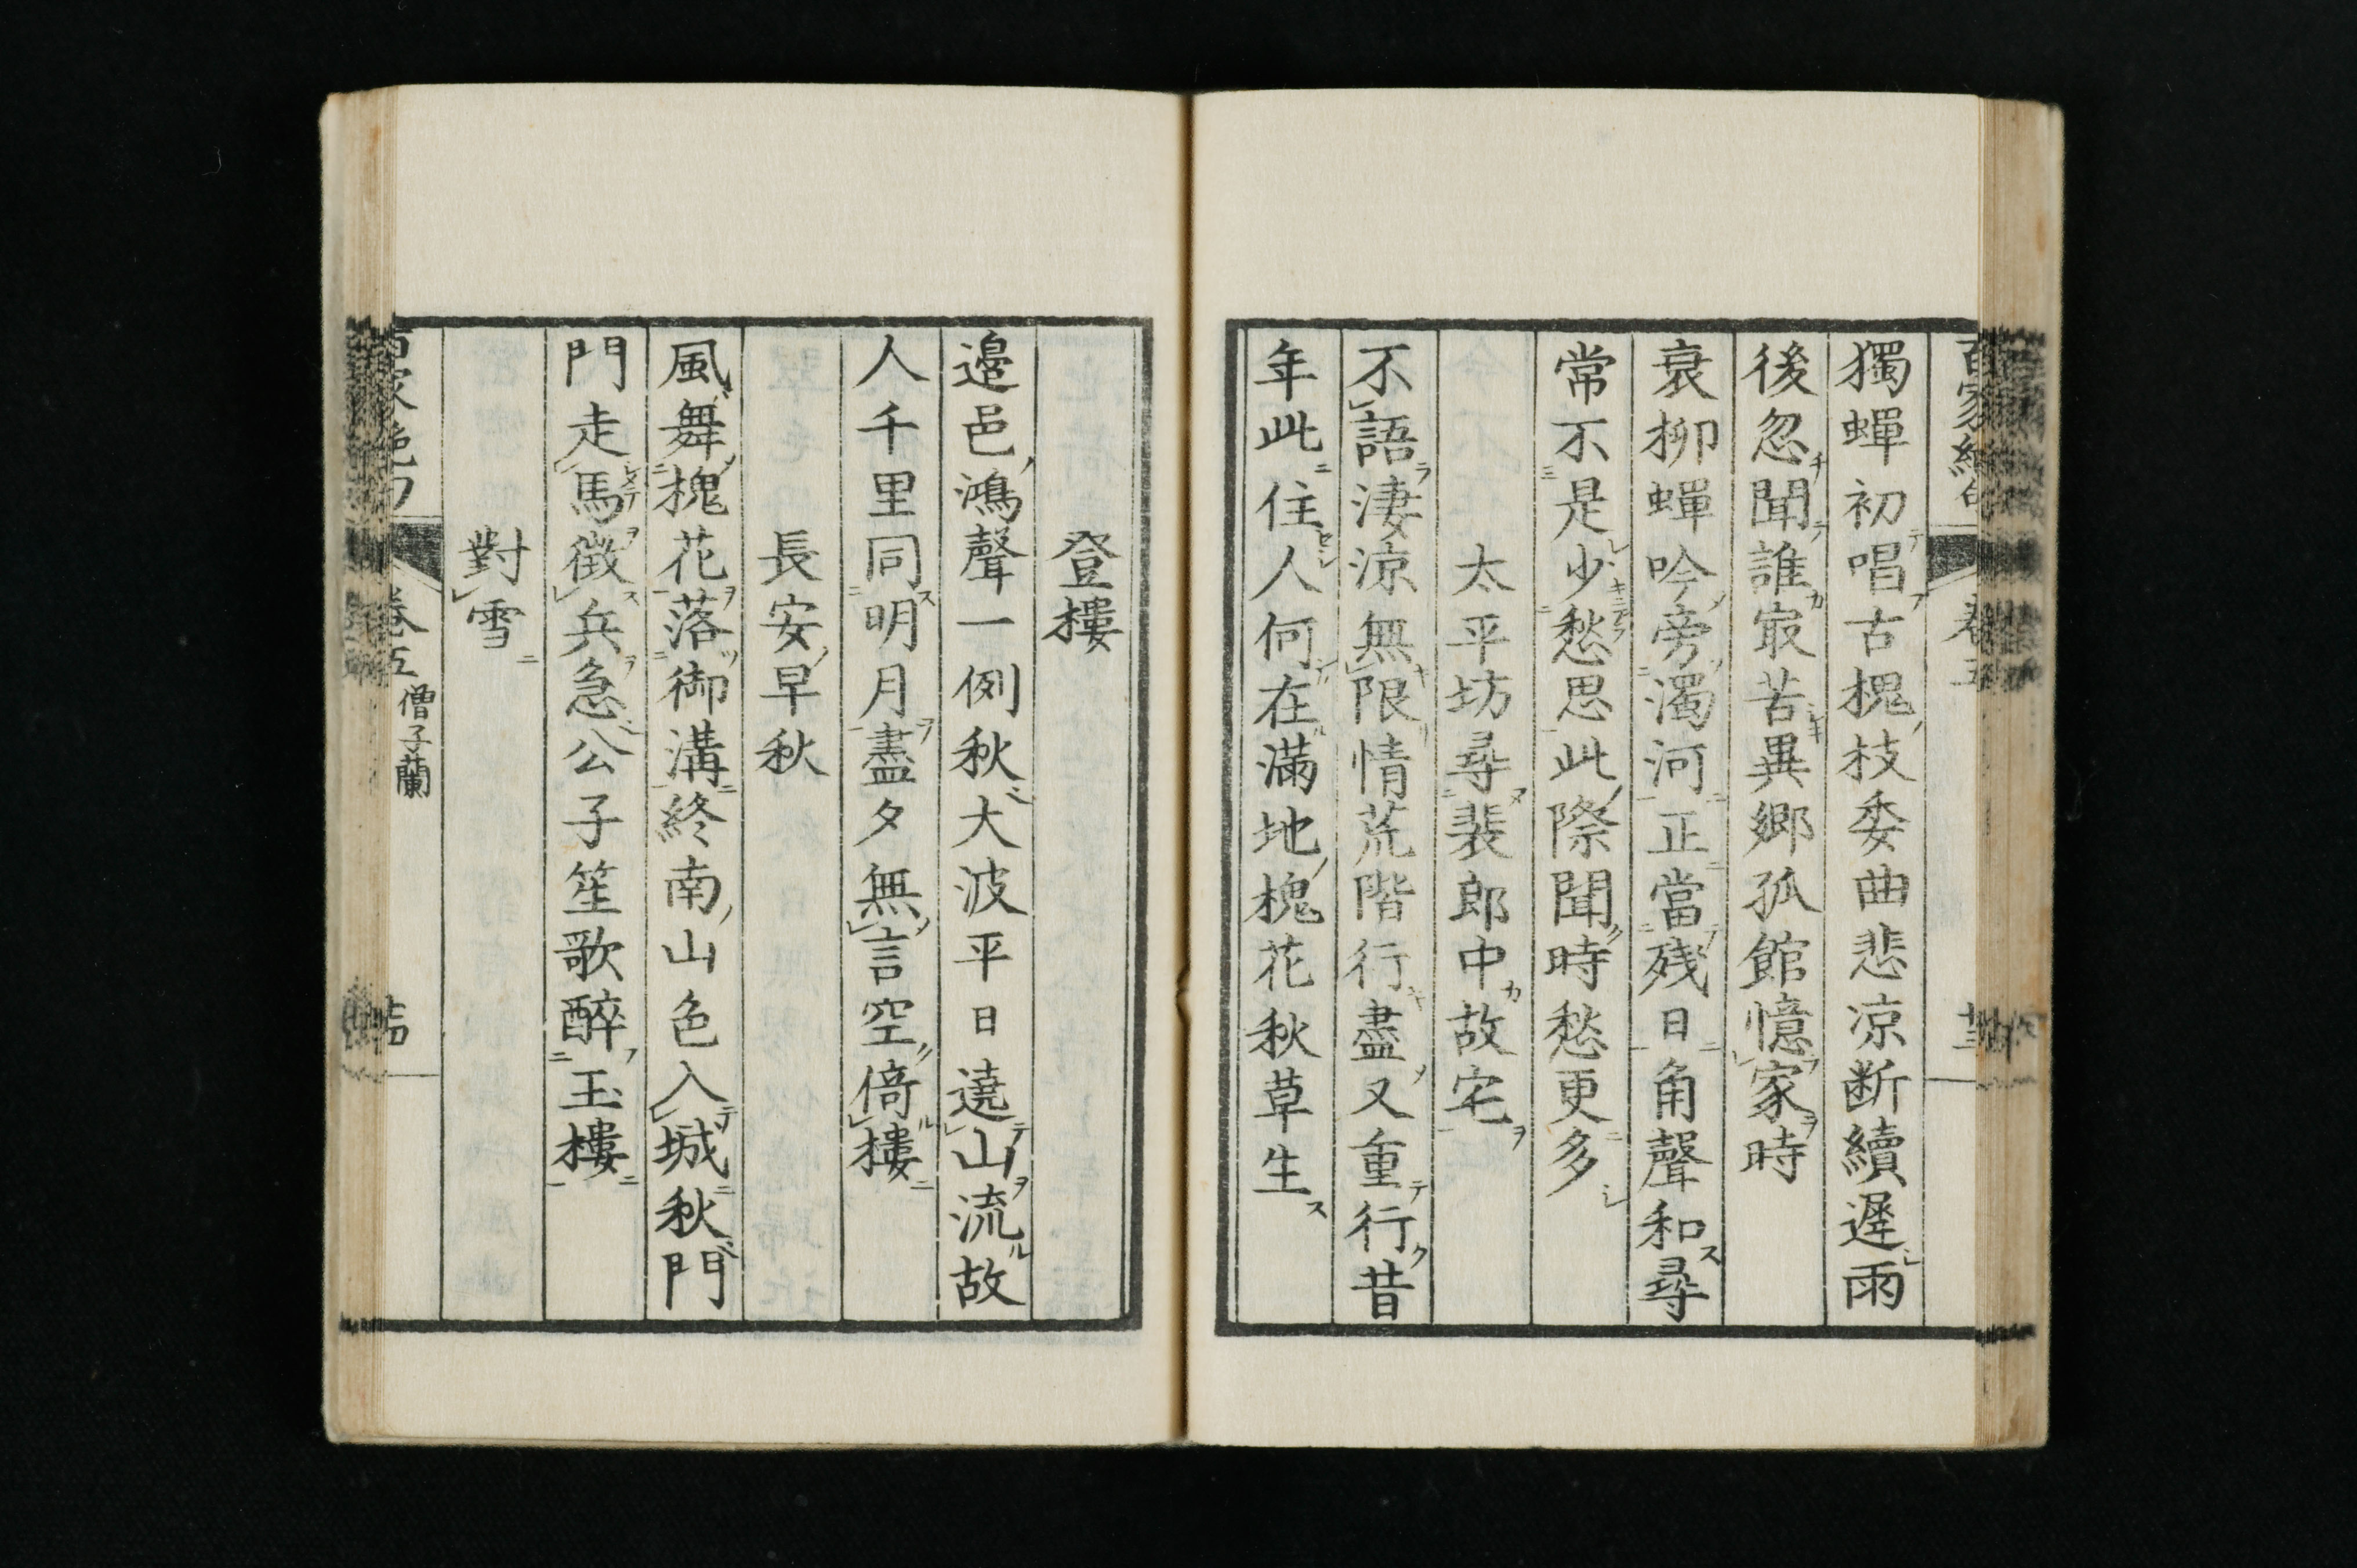 百家絶句 卷五
獨蟬初唱古槐枝委曲悲涼断續遲雨
後忽聞誰㝡苦異郷孤館憶家時
衰柳蟬吟旁濁河正當殘日角聲和尋
常不是少愁思此際聞時愁更多
太平坊尋裴郎中故宅
不語淒涼無限情荒階行盡又重行昔
年此住人何在滿地槐花秋草生
登樓
邉邑鴻聲一例秋大波平日遶山流故
人千里同明月盡夕無言空倚樓
長安早秋
風舞槐花落御溝終南山色入城秋門
門走馬徵兵急公子笙歌醉玉樓
對雪
百家絶句 卷五 僧子蘭